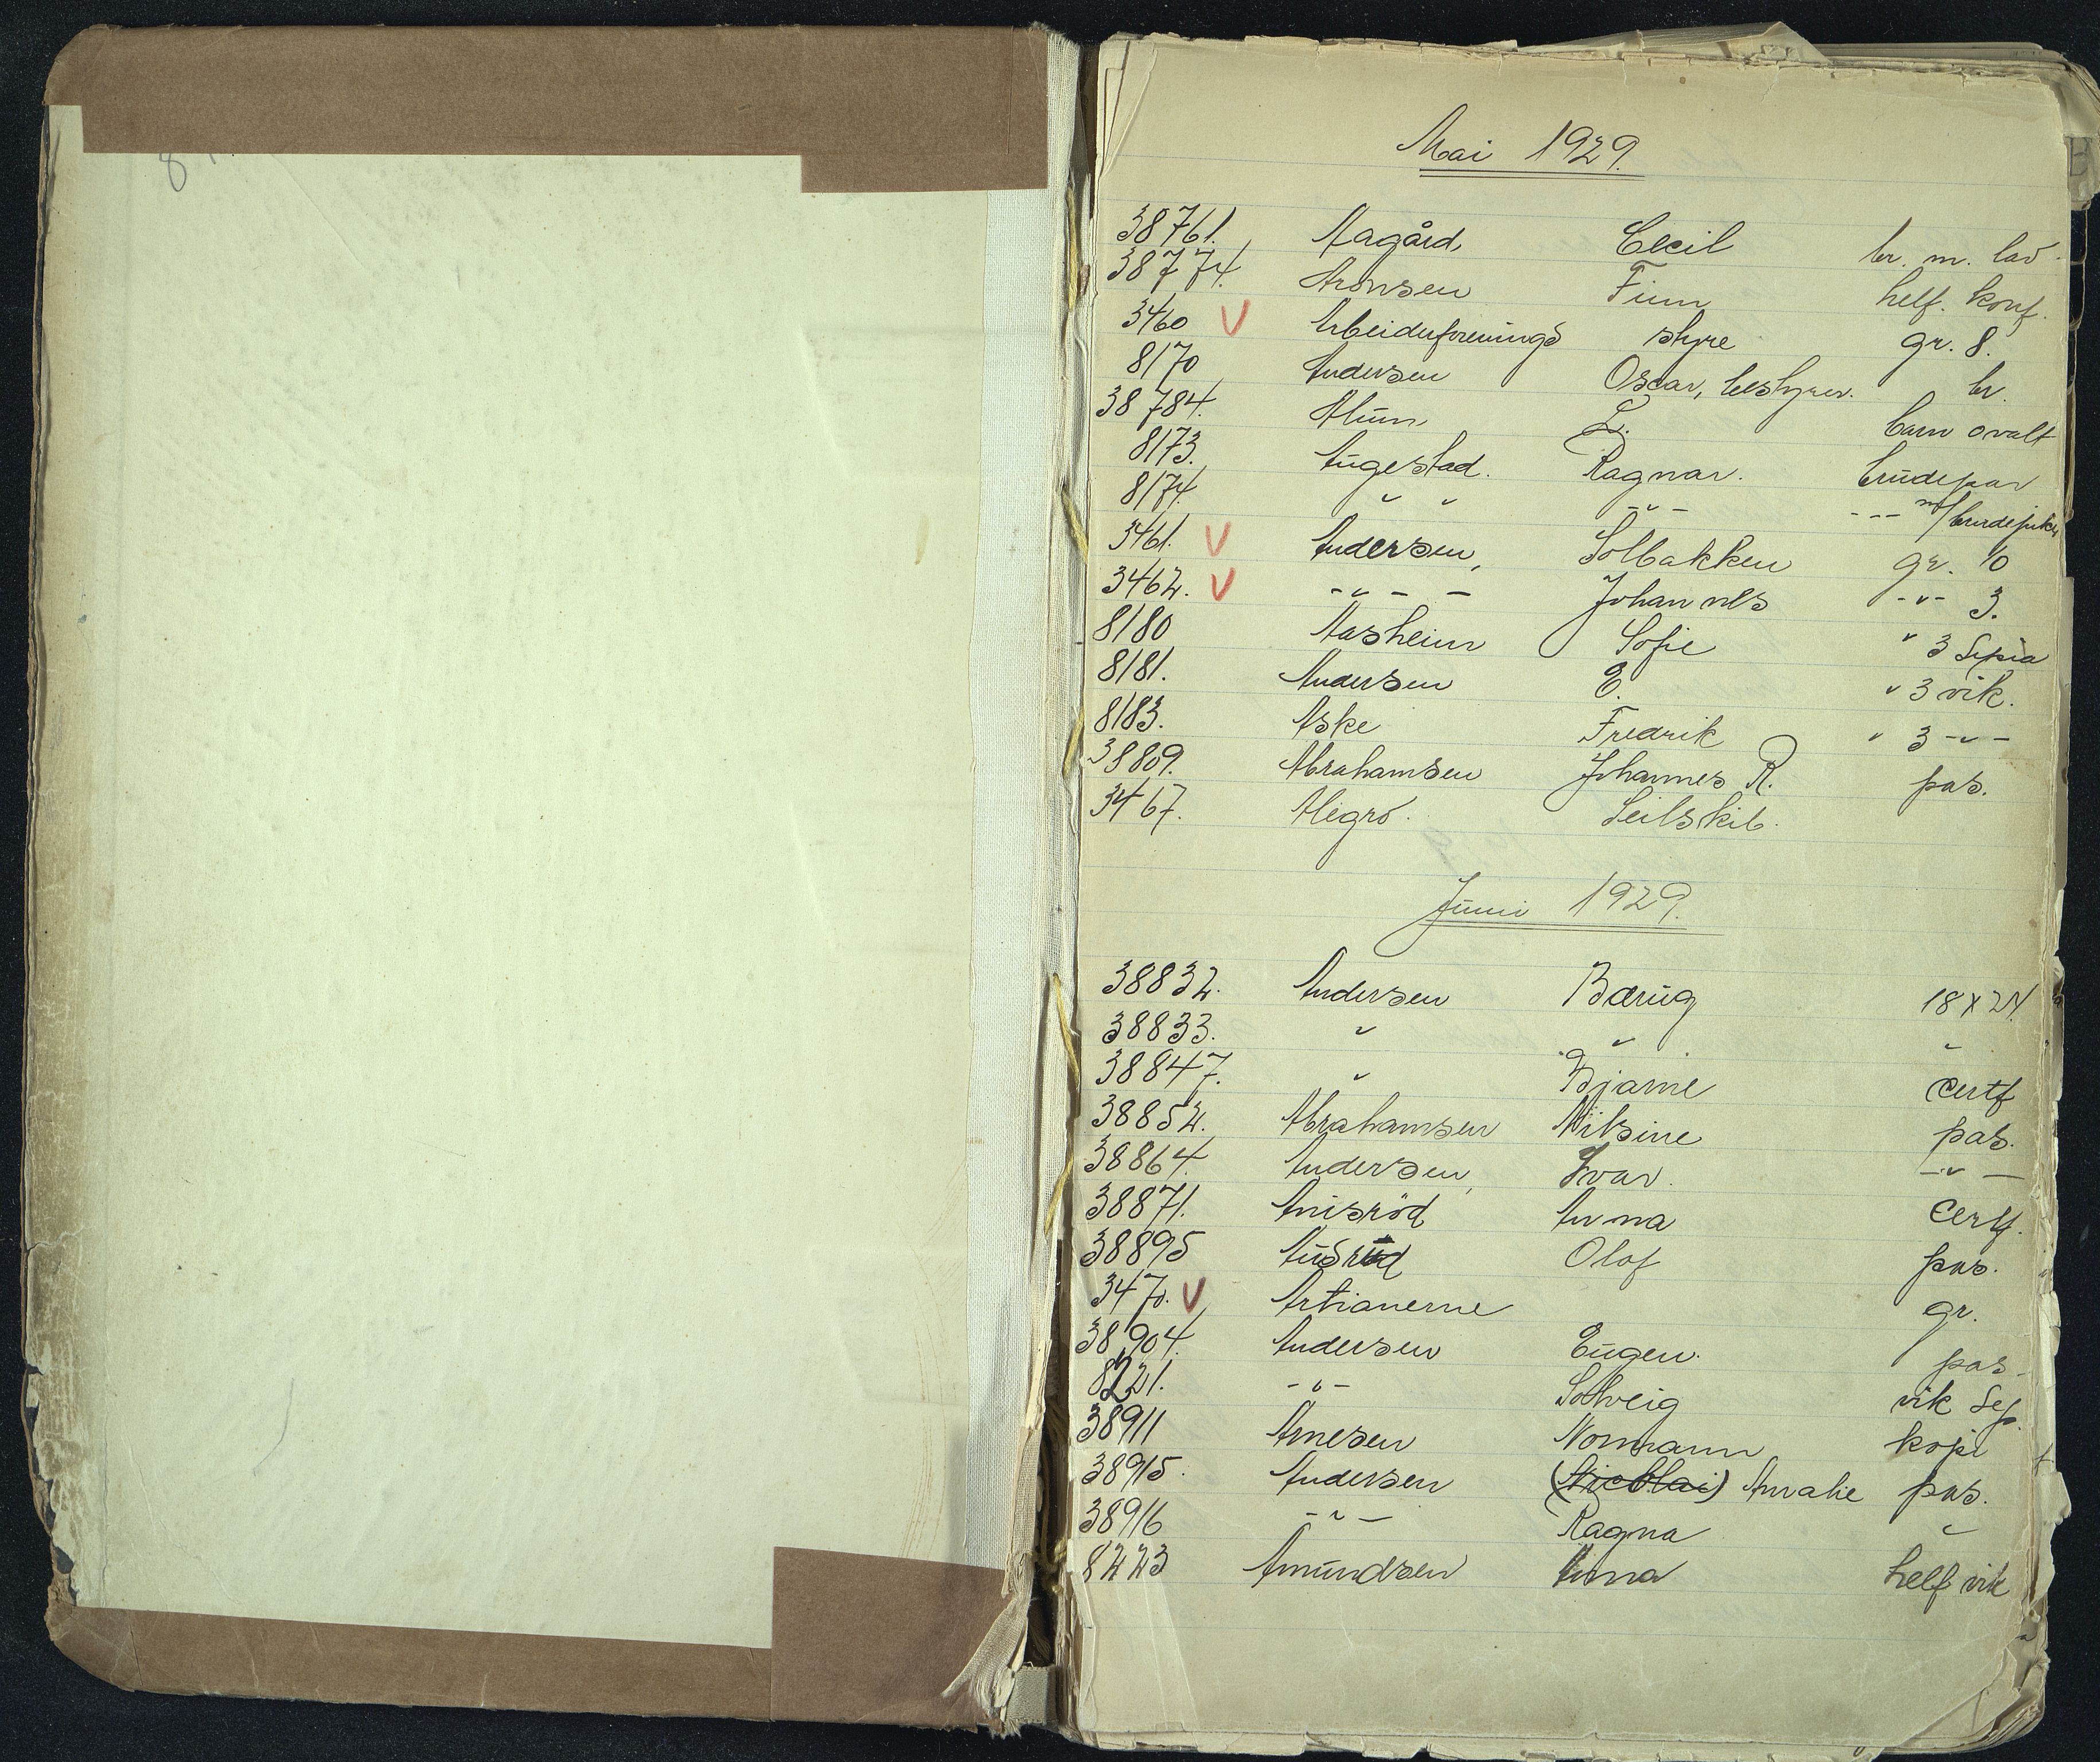 Mai 1929.
38761. Aagård, Cecil br. m. lav.
38774. Aronsen Finn helf. konf.
3460 V Arbeiderforenings styre gr. 8.
8170 Andersen Oscar, bestyrer. br.
38784. Alum L. barn ovalt
8173. Augestad. Ragnar. brudepar
8174 " " - " - --- m/ brudepiker
3461. V Andersen, Solbakken gr. 10
3462. V - " - - Johannes - " - 3.
8180 Aasheim Sofie " 3 Sepia
8181. Andersen E. " 3 vik.
8183. Aske Fredrik " 3 - " -
38809. Abrahamsen Johannes R. pas.
3467. Alegro. Seilskib.
Juni 1929.
38832. Andersen Bærug 18 x 24.
38833. " " "
38847. " Bjarne Certf
38852. Abrahamsen Nilsine pas.
38864. Andersen, Ivar. - " -
38871. Anisröd Anna Certf.
38895 Audrud Olaf pas.
3470. V Artianerne gr.
38904. Andersen Eugen. pas.
8221. - " - Solveig vik Sep.
38911 Arnesen Normann kopi
38915. Andersen (Nicolai) Amalie pas.
38916 - " - Ragna "
8223 Amundsen Anna helf vik
8
B